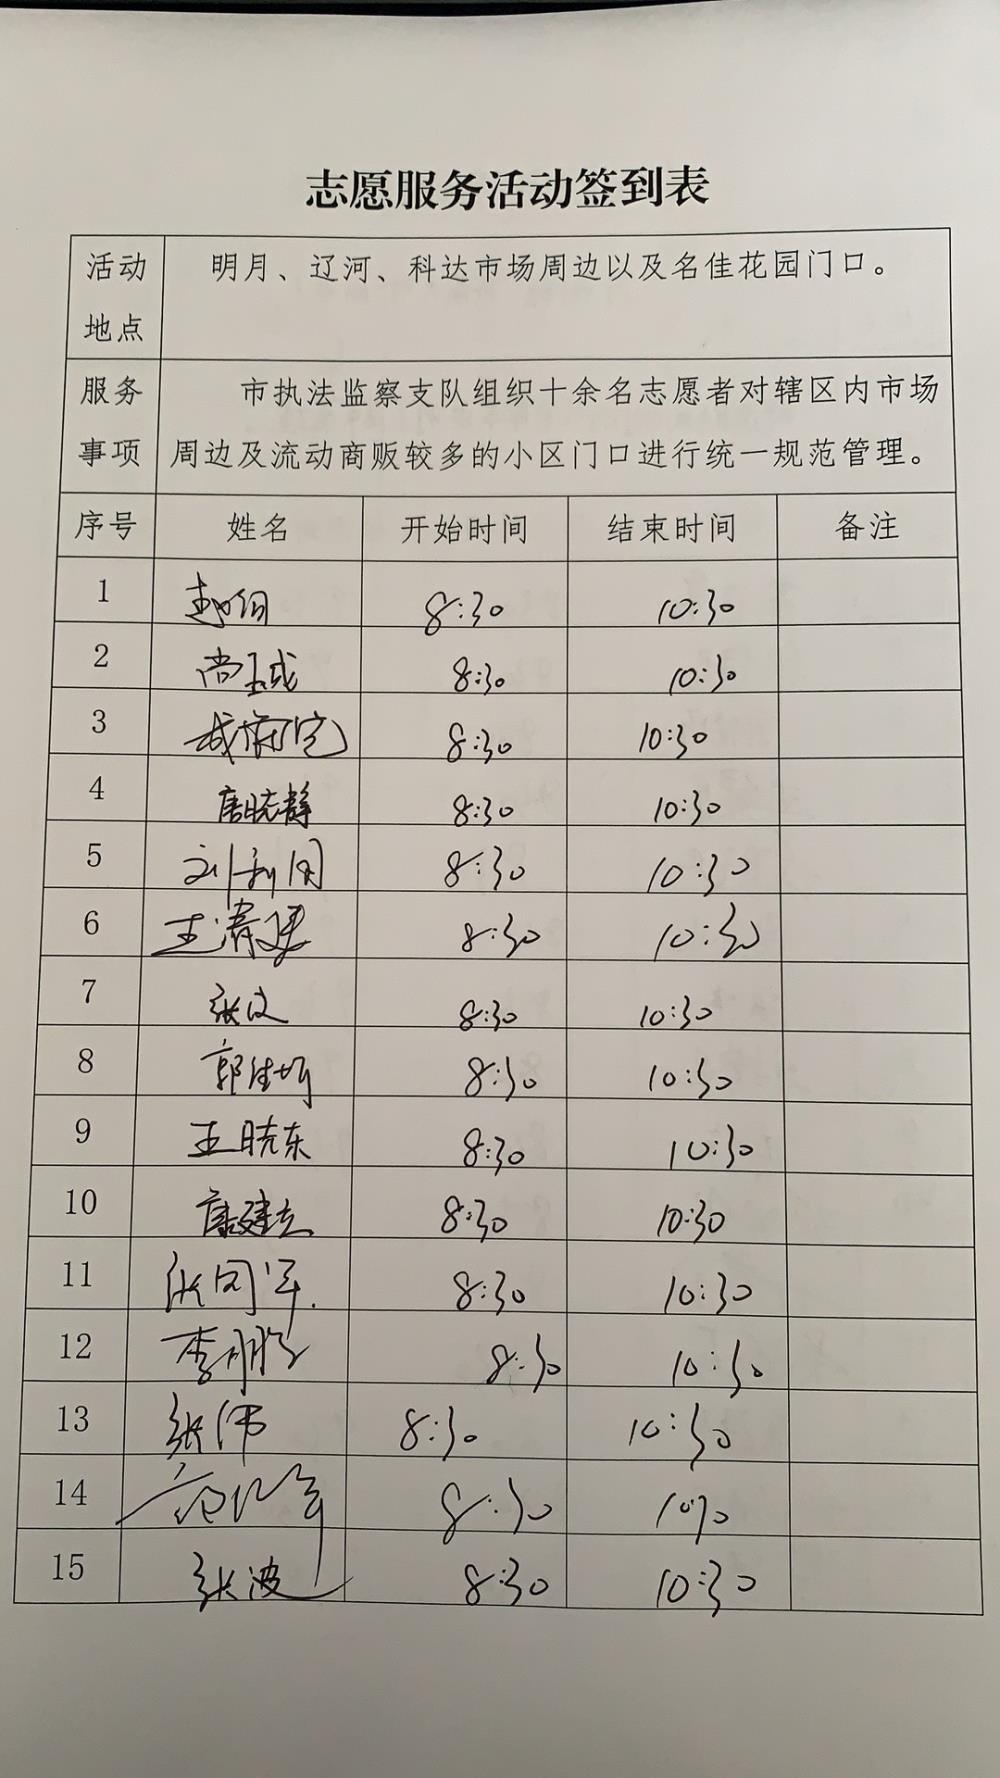 志愿服务活动签到表
活动地点 明月、辽河、科达市场周边以及名佳花园门口。
服务事项 市执法监察支队组织十余名志愿者对辖区内市场
周边及流动商贩较多的小区门口进行统一规范管理。
序号 姓名 开始时间 结束时间 备注
1 8:30 10:30
2 尚玉成 8:30 10:30
3 8:30 10:30
4 唐晓静 8:30 10:30
5 刘利国 8:30 10:30
6 王清建 8:30 10:30
7 张文 8:30 10:30
8 郭佳村 8:30 10:30
9 王晓东 8:30 10:30
10 唐建立 8:30 10:30
11 张同军. 8:30 10:30
12 李鹏 8:30 10:30
13 张伟 8:30 10:30
14 8:30
15 张波 8:30 10:30